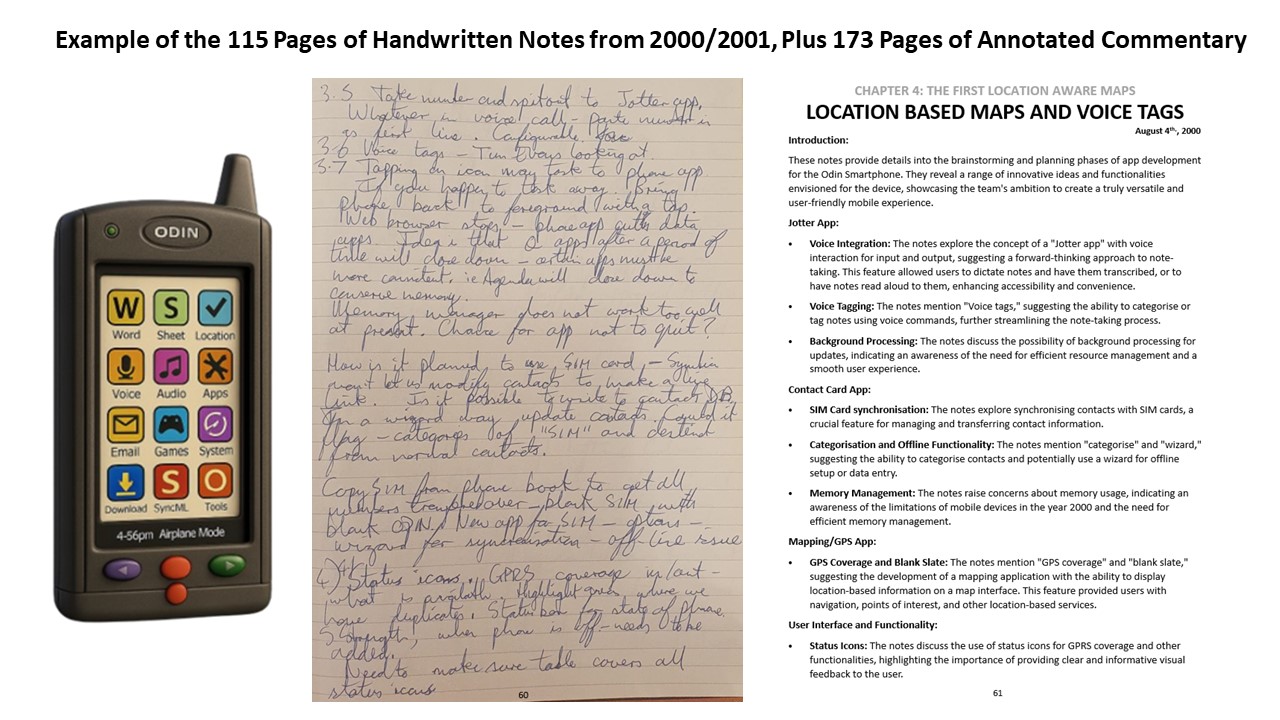 Example of the 115 Pages of Handwritten Notes from 2000/2001, Plus 173 Pages of Annotated Commentary
ODIN
W S
Word Sheet Location
Voice Audio Apps
Email Games System
S O
Download SyncML Tools
4-56pm Airplane Mode
3.5 Take number and spitout to Jotter app,
Whichever in voice call - paste number in
as first line. Configurable.
3.6 Voice tags - Tim Evays looking at.
3.7 Tapping on icon may task to phone app
If you happen to task away. Bring
Phone back to foreground with a tap
Web browser stops - phone app quits data
apps. Idea is that apps after a period of
time will close down - certain apps must be
more consistent. ie Agenda will close down to
conserve memory.
Memory manager does not work too well
at present. Chance for app not to quit?
How is it planned to use SIM card - Symbian
won't let us modify contacts to make a live
link. Is it possible to write to contacts DB.
In a wizard way update contacts. Could it
flag - categories of "SIM" and distinct
from normal contacts.
Copy SIM from phone book to get all
numbers over - blank SIM with
blank ODIN. New app for SIM - options -
wizard for syncronisation - off-line issue
4) Status icons. GPRS coverage in/out -
what is available. Highlight green where we
have duplicates. Status box for state of phone.
Strength, when phone is off - needs to be
added.
Need to make sure table covers all
status icons
60
CHAPTER 4: THE FIRST LOCATION AWARE MAPS
LOCATION BASED MAPS AND VOICE TAGS
August 4th, 2000
Introduction:
These notes provide details into the brainstorming and planning phases of app development
for the Odin Smartphone. They reveal a range of innovative ideas and functionalities
envisioned for the device, showcasing the team's ambition to create a truly versatile and
user-friendly mobile experience.
Jotter App:
• Voice Integration: The notes explore the concept of a "Jotter app" with voice
interaction for input and output, suggesting a forward-thinking approach to note-
taking. This feature allowed users to dictate notes and have them transcribed, or to
have notes read aloud to them, enhancing accessibility and convenience.
• Voice Tagging: The notes mention "Voice tags," suggesting the ability to categorise or
tag notes using voice commands, further streamlining the note-taking process.
• Background Processing: The notes discuss the possibility of background processing for
updates, indicating an awareness of the need for efficient resource management and a
smooth user experience.
Contact Card App:
• SIM Card synchronisation: The notes explore synchronising contacts with SIM cards, a
crucial feature for managing and transferring contact information.
• Categorisation and Offline Functionality: The notes mention "categorise" and "wizard,"
suggesting the ability to categorise contacts and potentially use a wizard for offline
setup or data entry.
• Memory Management: The notes raise concerns about memory usage, indicating an
awareness of the limitations of mobile devices in the year 2000 and the need for
efficient memory management.
Mapping/GPS App:
• GPS Coverage and Blank Slate: The notes mention "GPS coverage" and "blank slate,"
suggesting the development of a mapping application with the ability to display
location-based information on a map interface. This feature provided users with
navigation, points of interest, and other location-based services.
User Interface and Functionality:
• Status Icons: The notes discuss the use of status icons for GPRS coverage and other
functionalities, highlighting the importance of providing clear and informative visual
feedback to the user.
61